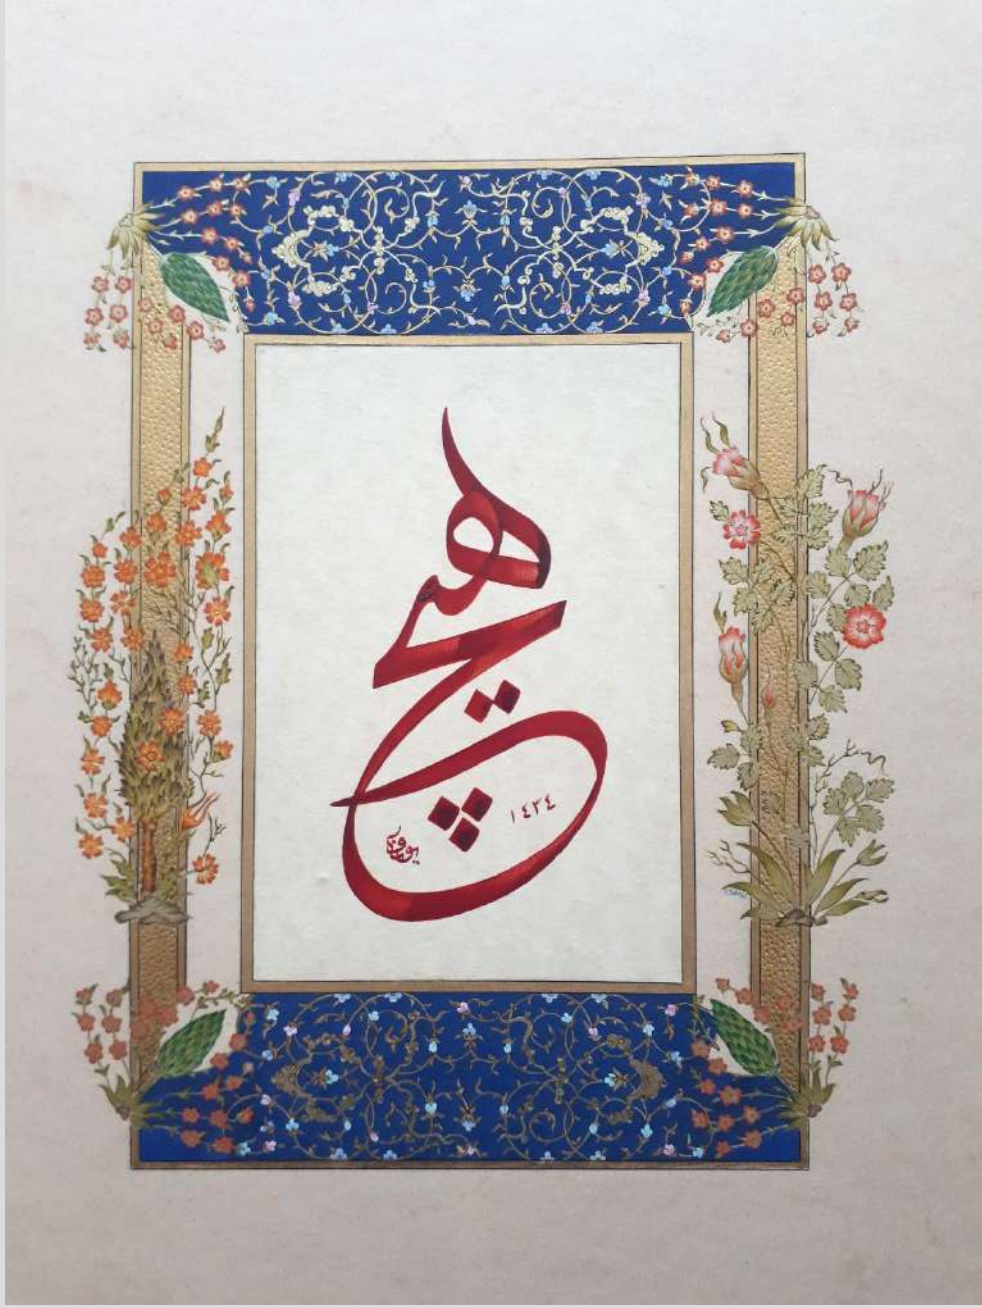 هيچ
١٤٣٤